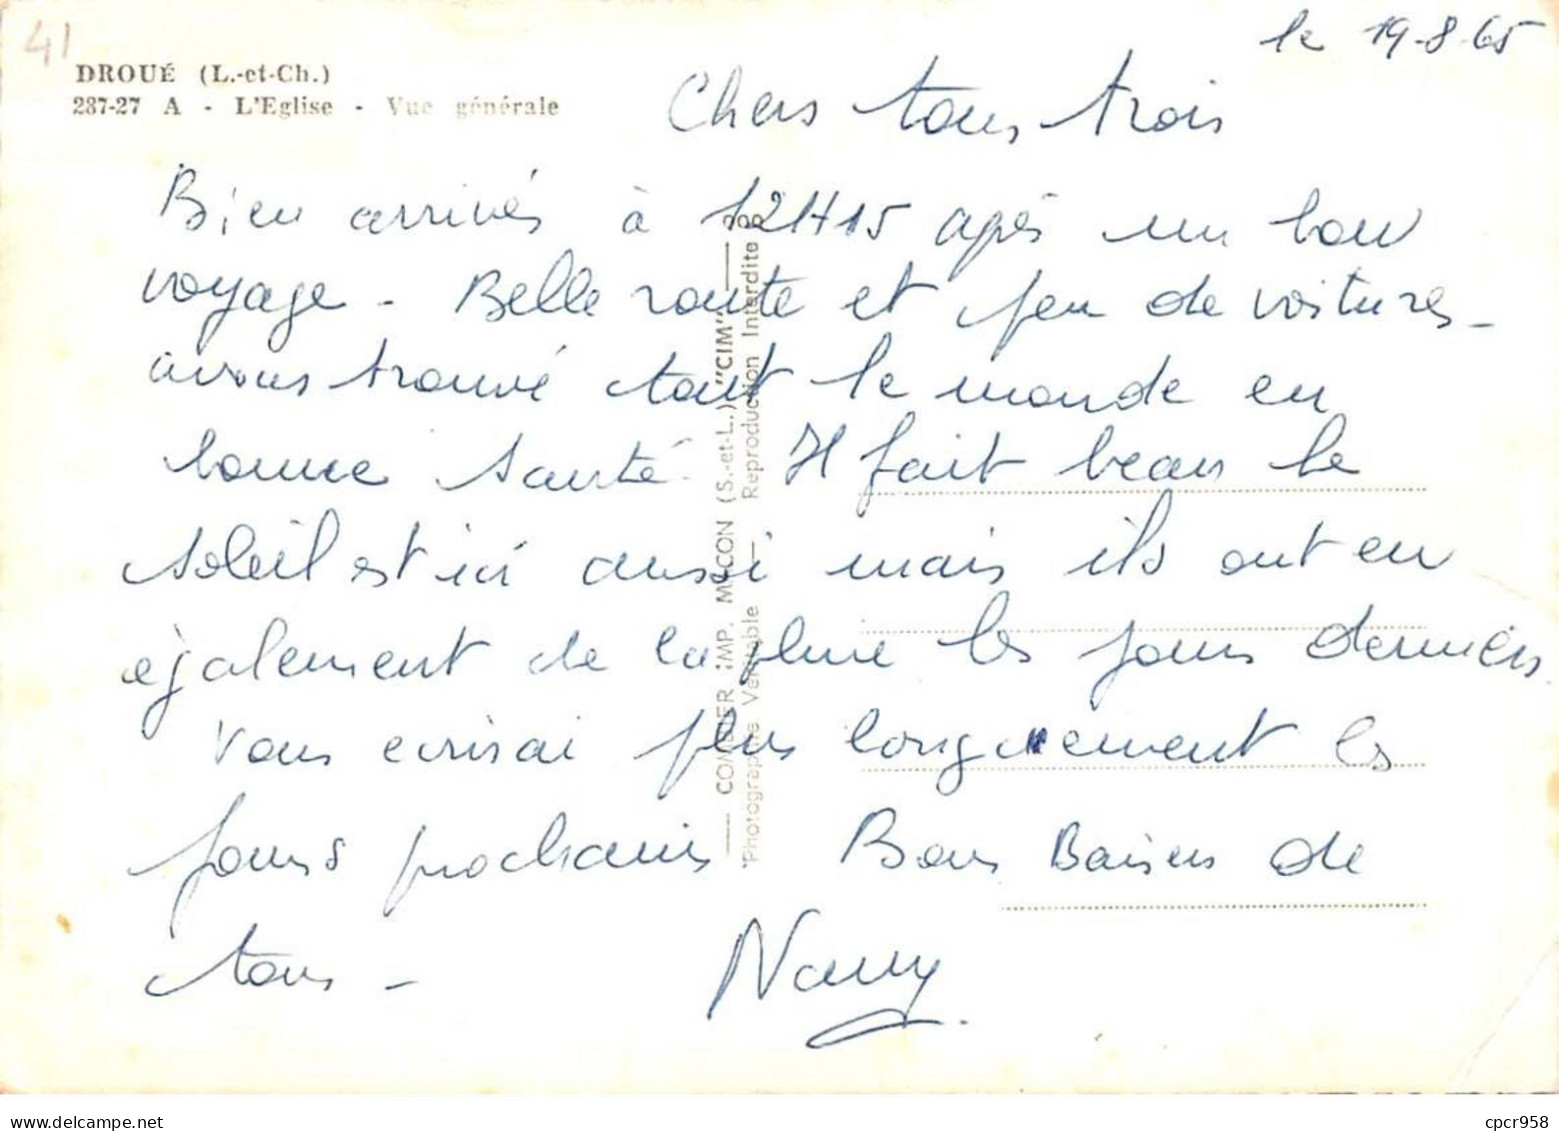 41
le 19-8-65
DROUÉ (L.-et-Ch.)
287-27 A - L'Eglise - Vue générale
Chers tous trois
Bien arrivés à 12H15 après un bon
voyage - Belle route et peu de voitures -
avons trouvé tout le monde en
bonne santé. Il fait beau le
soleil est ici aussi mais ils ont eu
également de la pluie les jours derniers
Vous écrirai plus longuement les
jours prochains Bons Baisers de
tous -
Nany
COMBIER IMP. MACON (S.-et-L.) "CIM"
Photographie Véritable — Reproduction Interdite
cpcr958